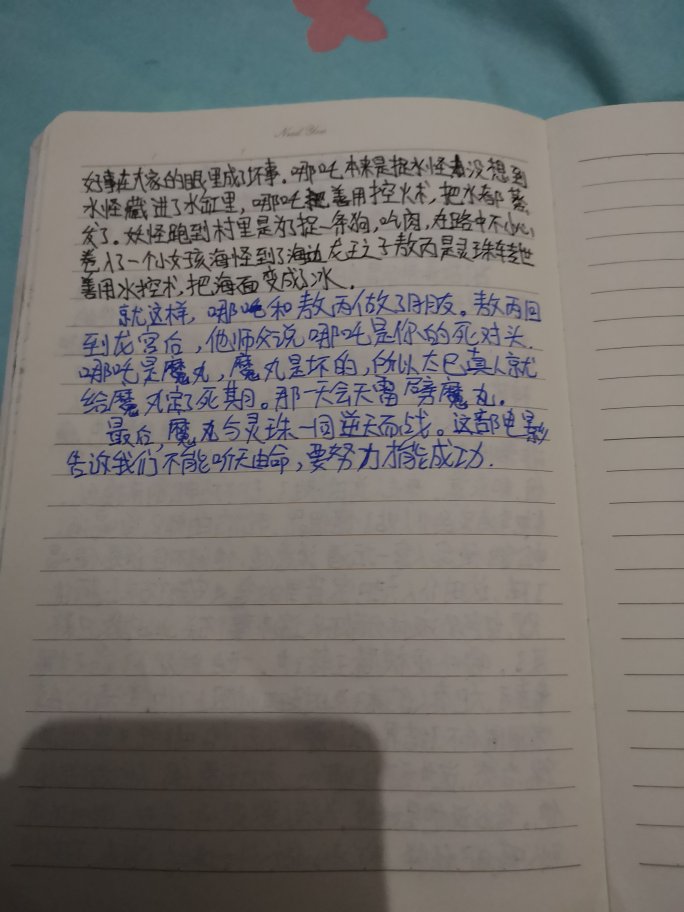 Need You
好事在大家的眼里成了坏事。哪吒本来是捉水怪没想到
水怪藏进了水缸里，哪吒善用控火术，把水都蒸
发了。妖怪跑到村里是为了捉一条狗，吃肉，在路中不小心，
卷入了一个小女孩海怪到了海边龙王之子敖丙是灵珠转世
善用水控术，把海面变成了冰．
就这样，哪吒和敖丙做了朋友。敖丙回
到龙宫后，他师父说哪吒是你的死对头．
哪吒是魔丸，魔丸是坏的，所以太巳真人就
给魔丸定了死期。那一天会天雷劈魔丸．
最后，魔丸与灵珠一同逆天而战。这部电影
告诉我们不能听天由命，要努力才能成功．